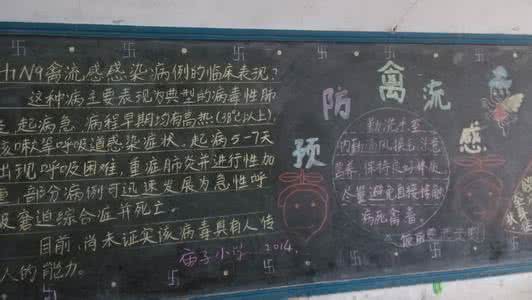 H1N9禽流感感染病例的临床表现?
这种病主要表现为典型的病毒性肺
起病急,病程早期均有高热(38℃以上),
咳嗽等呼吸道感染症状。起病5-7天
出现呼吸困难,重症肺炎并进行性加
重,部分病例可迅速发展为急性呼
吸窘迫综合症并死亡。
目前,尚未证实该病毒具有人传
人的能力。
庙子小学 2014.
预防禽流感
勤洗手至
内勤通风换气注意
营养,保持良好
尽量避免直接接触
病死禽畜。